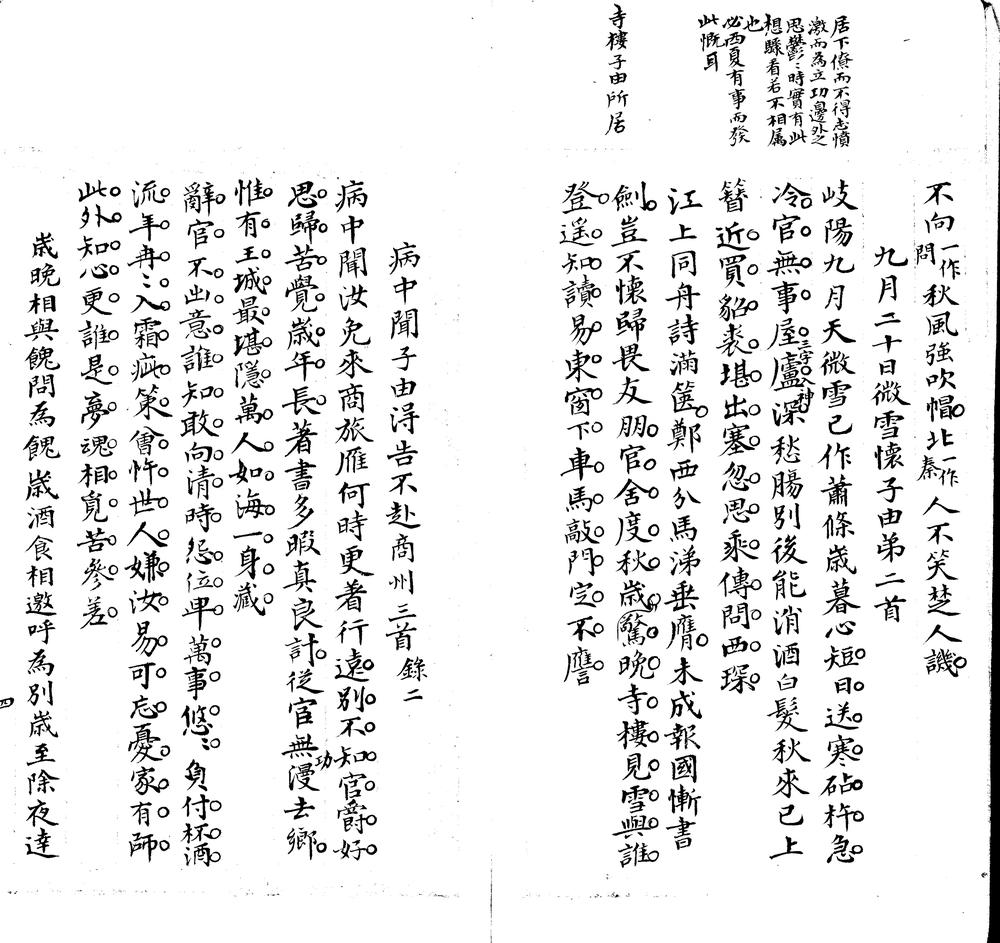 居下僚而不得志憤
激而為立功邊外之
思鬱々時實有此
想驟看若不相屬
也
必西夏有事而發
此慨耳
寺樓子由所居
不向一作問秋風強吹帽北一作秦人不笑楚人譏
九月二十日微雪懷子由弟二首
岐陽九月天微雪已作蕭條歲暮心短日送寒砧杵急
冷官無事屋廬深愁腸別後能消酒白髮秋來已上
三字入神
簪近買貂裘堪出塞忽思乘傳問西琛
江上同舟詩滿篋鄭西分馬涕垂膺未成報國慚書
劍豈不懷歸畏友朋官舍度秋驚歲晚寺樓見雪與誰
登遥知讀易東窗下車馬敲門定不譍
病中聞子由得告不赴商州三首錄二
病中聞汝免來商旅雁何時更著行遠別不知官爵好
思歸苦覺歲年長著書多暇真良計從官無功漫去鄉
惟有王城最堪隱萬人如海一身藏
辭官不出意誰知敢向清時怨位卑萬事悠々負付杯酒
流年冉々入霜疵策曾忤世人嫌汝易可忘憂家有師
此外知心更誰是夢魂相覓苦參差
歲晚相與餽問為餽歲酒食相邀呼為別歲至除夜達
四